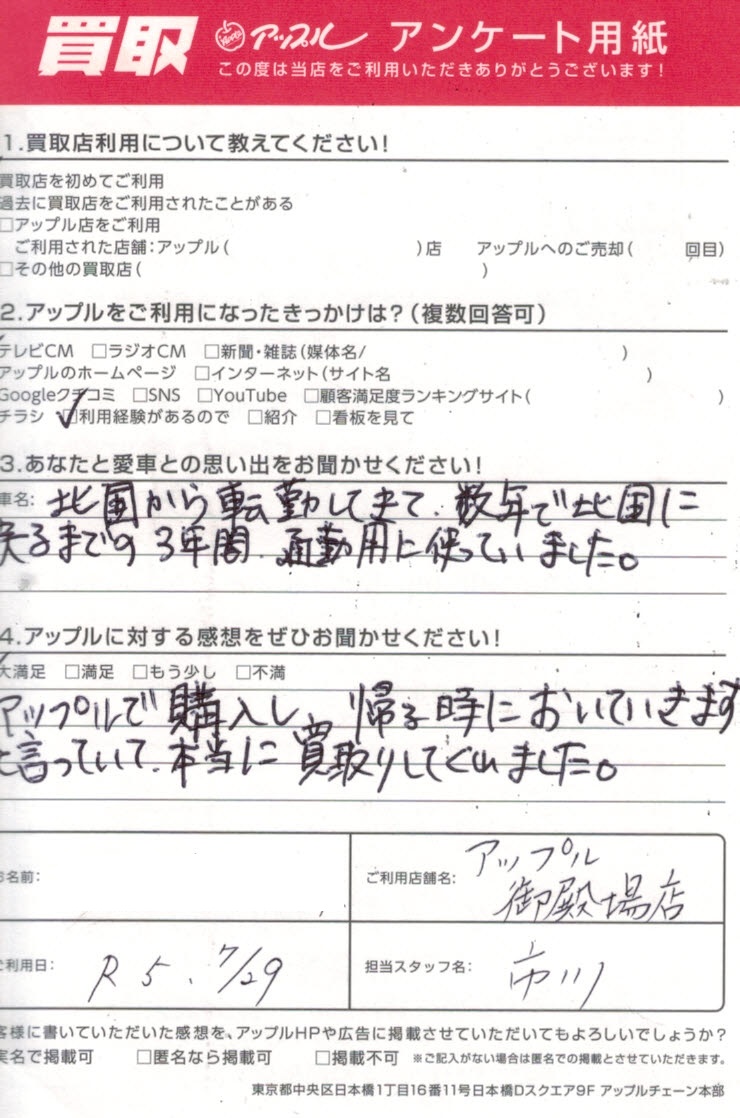 買取 アップル アンケート用紙
この度は当店をご利用いただきありがとうございます!
1.買取店利用について教えてください!
買取店を初めてご利用
過去に買取店をご利用されたことがある
□アップル店をご利用
ご利用された店舗:アップル( )店 アップルへのご売却( 回目)
□その他の買取店( )
2.アップルをご利用になったきっかけは?(複数回答可)
テレビCM □ラジオCM □新聞・雑誌(媒体名/ )
アップルのホームページ □インターネット(サイト名 )
Googleクチコミ □SNS □YouTube □顧客満足度ランキングサイト( )
チラシ ☑利用経験があるので □紹介 □看板を見て
3.あなたと愛車との思い出をお聞かせください!
車名: 北国から転勤してきて、数年で北国に
戻るまでの3年間、通勤用に使っていました。
4.アップルに対する感想をぜひお聞かせください!
大満足 □満足 □もう少し □不満
アップルで購入し、帰る時においていきます
と言っていて、本当に買取りしてくれました。
お名前:
ご利用店舗名: アップル
御殿場店
ご利用日: R5. 7/29
担当スタッフ名: 市川
客様に書いていただいた感想を、アップルHPや広告に掲載させていただいてもよろしいでしょうか?
実名で掲載可 □匿名なら掲載可 □掲載不可 ※ご記入がない場合は匿名での掲載とさせていただきます。
東京都中央区日本橋1丁目16番11号日本橋Dスクエア9F アップルチェーン本部